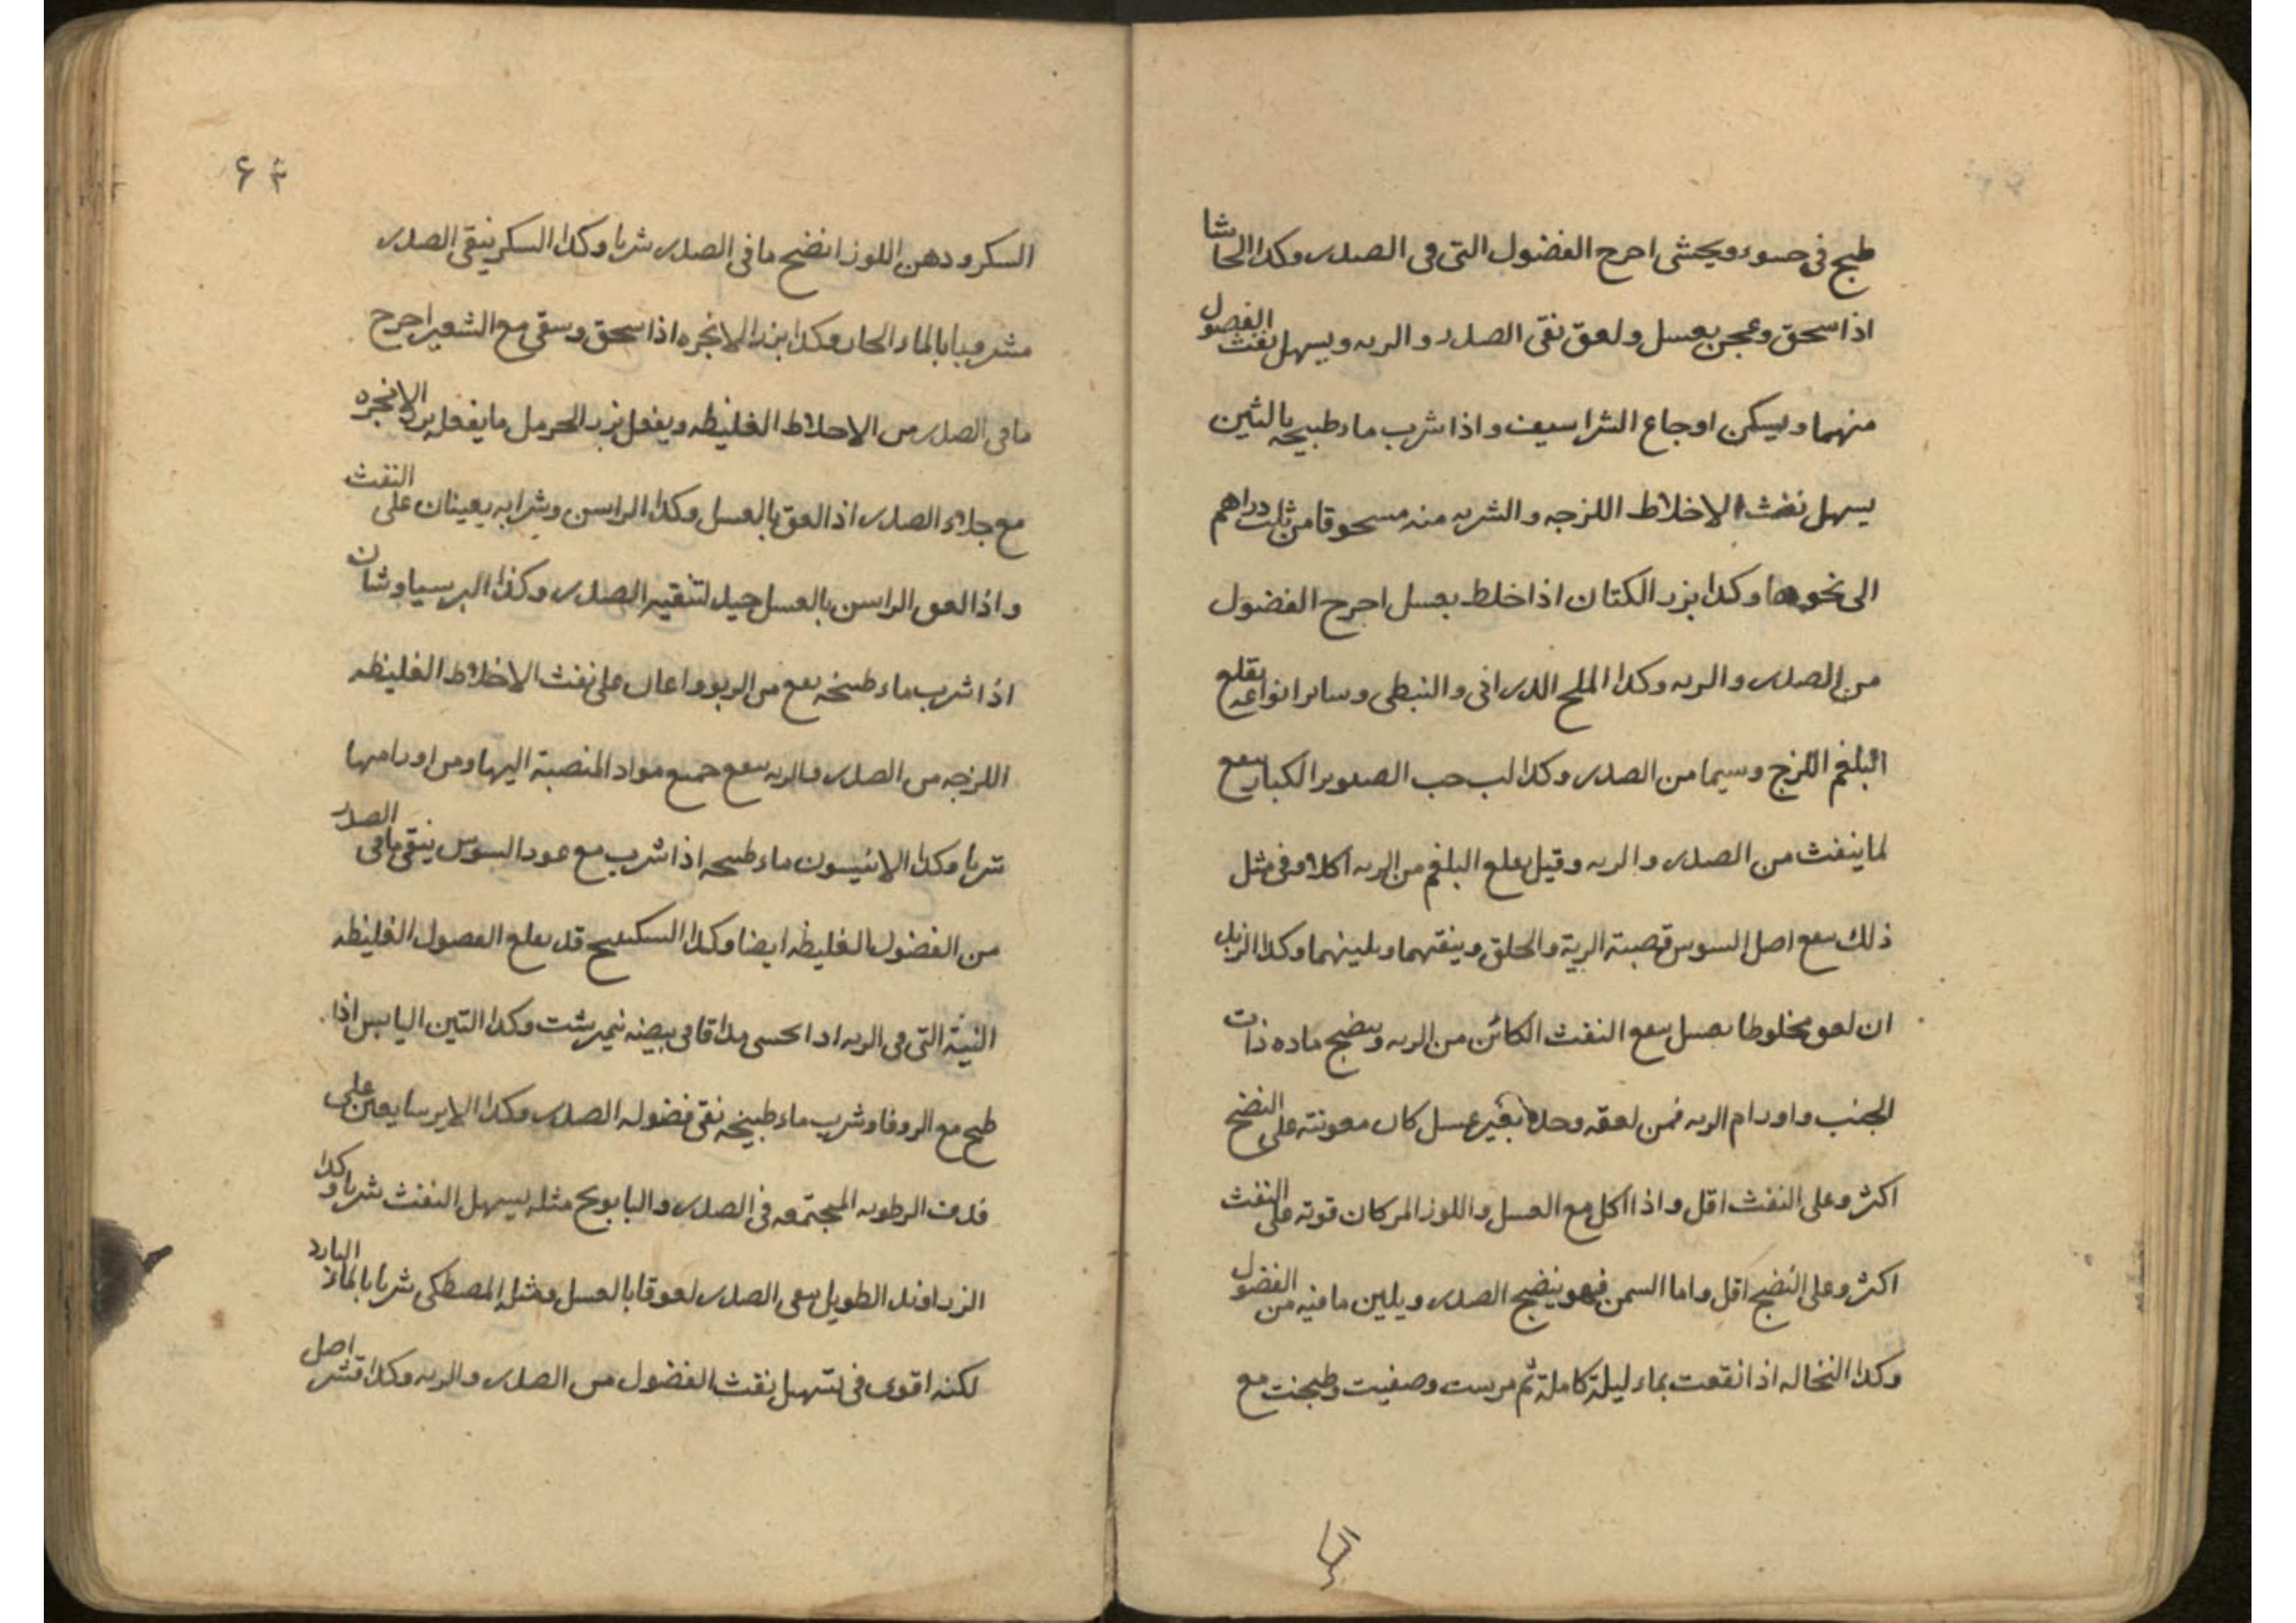 طبخ في حسوء ويحشى احرح الفضول التى فى الصدر وكدا الحاشا
اذا سحق وعجن بعسل ولعق نقى الصدر والريه ويسهل نفث الفصول
منهما ويسكن اوجاع الشراسيف واذا شرب ماء طبيخه بالتين
يسهل نفث الاخلاط اللزجه والشربه منه مسحوقا من ثلث دراهم
الى نحوها وكدا بزر الكتان اذا خلط بعسل اخرج الفضول
من الصدر والريه وكدا الملح الدرانى والنبطى وساىر انواعه يقلع
البلغم اللزج وسيما من الصدر وكدا لب حب الصنوبر الكبار ىىفع
لما ينفث من الصدر والريه وقيل ىقلع البلغم من الريه اكلا وفى مثل
ذلك ىىفع اصل السوس قصبة الرية والحلق وينقيهما ويلينهما وكدا الزبد
ان لعق مخلوطا بعسل ىىفع النفث الكائن من الريه وينضج ماده ذات
الجنب واورام الريه فمن لعقه وحده بغير عسل كان معونته على النضج
اكثر وعلى النفث اقل واذا اكل مع العسل واللوز المر كان قوته على النفث
اكثر وعلى النضج اقل واما السمن فهو ينضج الصدر ويلين ما فيه من الفضول
وكدا النخاله اذا انقعت بماء ليلة كاملة ثم مرست وصفيت وطبخت مع
السكر ودهن اللوز انضج ما فى الصدر شربا وكدا السكر ينقى الصدر
مشروبا بالماء الحار وكدا بزر الانجره اذا سحق وسقى مع الشعير اخرج
ما فى الصدر من الاخلاط الغليظه ويفعل بزر الحرمل ما يفعل بزر الانجره
مع جلاء الصدر اذا لعق بالعسل وكدا الراسن وشرابه يعينان على النفث
واذا لعق الراسن بالعسل جيد لتنقيه الصدر وكذا البرسياوشان
اذا شرب ماء طبيخه ىفع من الربو واعان على نفث الاخلاط الغليظه
اللزجه من الصدر والريه ىىفع جميع مواد المنصبة اليها ومن اورامها
شربا وكدا الانيسون ماء طبيخه اذا شرب مع عود السوس ينقى ما فى الصدر
من الفضول الغليظه ايضا وكدا السكبينج قد ىقلع الفصول الغليظه
النيئة التى فى الريه اذا احسى مدافا فى بيضه نيمرشت وكدا التين اليابس اذا
طبخ مع الزوفا وشرب ماء طبيخه نقى فضوله الصدر وكدا الايرسا يعين على
قذف الرطوبه المجتمعه فى الصدر والبابونج مثله يسهل النفث شربا وكدا
الزراوند الطويل ينقى الصدر لعوقا بالعسل ومثله المصطكى شربا بالماء البارد
لكنه اقوى فى تسهيل نفث الفضول من الصدر والريه وكدا قشر اصل